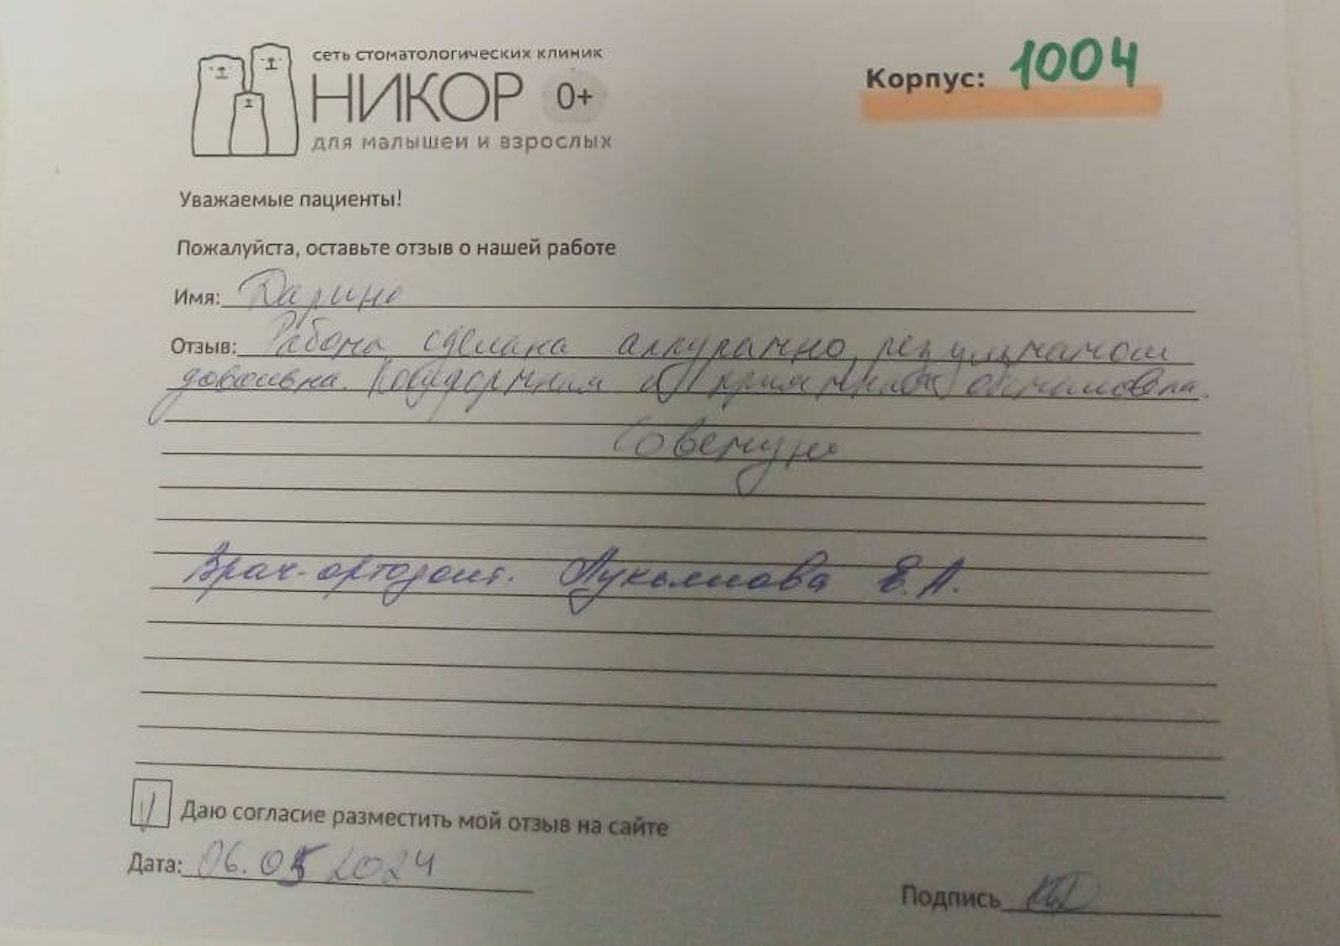 сеть стоматологических клиник
НИКОР 0+
для малышей и взрослых
Корпус: 1004
Уважаемые пациенты!
Пожалуйста, оставьте отзыв о нашей работе
Имя: Дарина
Отзыв: Работа сделана аккуратно, результатом
довольна. Комфортная и приятная обстановка.
Советую
Врач-ортодонт. Лукьянова Е.А.
Даю согласие разместить мой отзыв на сайте
Дата: 06.05 2024
Подпись